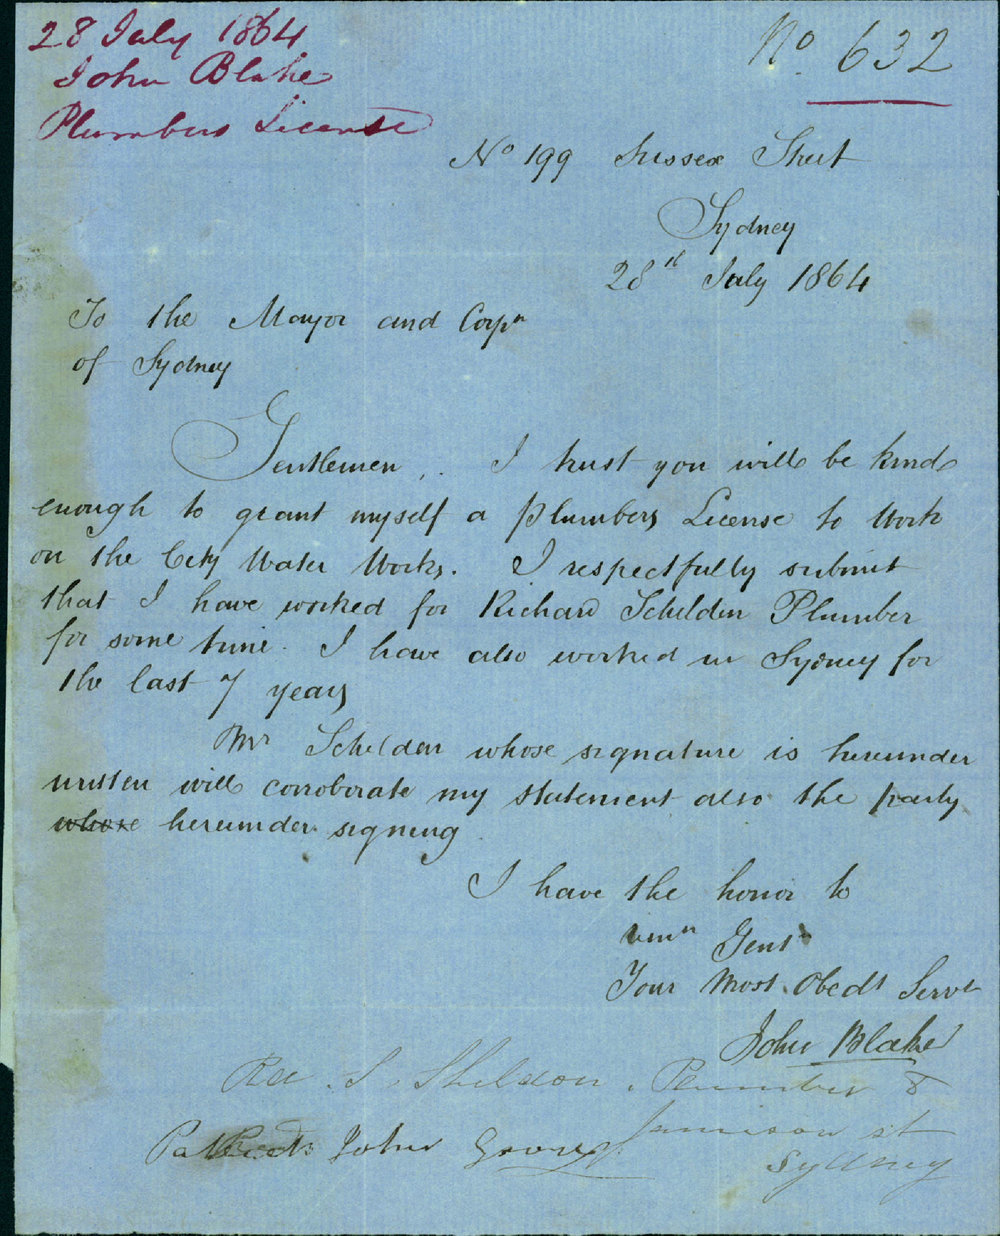 28 July 1864
John Blake
Plumbers License
No. 632
No 199 Sussex Street
Sydney
28th July 1864
To the Mayor and Corpn
of Sydney
Gentlemen, I trust you will be kind
enough to grant myself a plumbers License to Work
on the City Water Works. I respectfully submit
that I have worked for Richard Scheldon Plumber
for some time. I have also worked in Sydney for
the last 7 years
Mr Scheldon whose signature is hereunder
written will corroborate my statement also the party
whose hereunder signing
I have the honor to
Gentn
Your Most Obedt Servt
John Blake
Sheldon, Plumber
Jamison st
John
Sydney